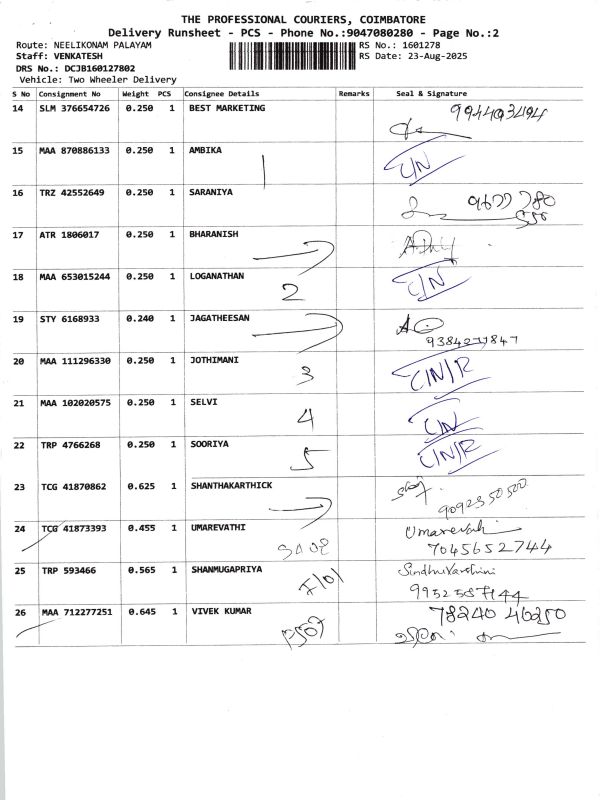 THE PROFESSIONAL COURIERS, COIMBATORE
Delivery Runsheet - PCS - Phone No.:9047080280 - Page No.:2
Route: NEELIKONAM PALAYAM
Staff: VENKATESH
DRS No.: DCJB160127802
Vehicle: Two Wheeler Delivery
RS No.: 1601278
RS Date: 23-Aug-2025
S No Consignment No Weight PCS Consignee Details Remarks Seal & Signature
14 SLM 376654726 0.250 1 BEST MARKETING
15 MAA 870886133 0.250 1 AMBIKA C/N
1
16 TRZ 42552649 0.250 1 SARANIYA 9677 780
550
17 ATR 1806017 0.250 1 BHARANISH
18 MAA 653015244 0.250 1 LOGANATHAN C/N
2
19 STY 6168933 0.240 1 JAGATHEESAN
9384271847
20 MAA 111296330 0.250 1 JOTHIMANI C/N/R
3
21 MAA 102020575 0.250 1 SELVI C/N
4
22 TRP 4766268 0.250 1 SOORIYA C/N/R
5
23 TCG 41870862 0.625 1 SHANTHAKARTHICK
9092350500
24 TCG 41873393 0.455 1 UMAREVATHI Umarevathi
7045652744
25 TRP 593466 0.565 1 SHANMUGAPRIYA Sindhuvarshini
9952587144
26 MAA 712277251 0.645 1 VIVEK KUMAR 78240 46250